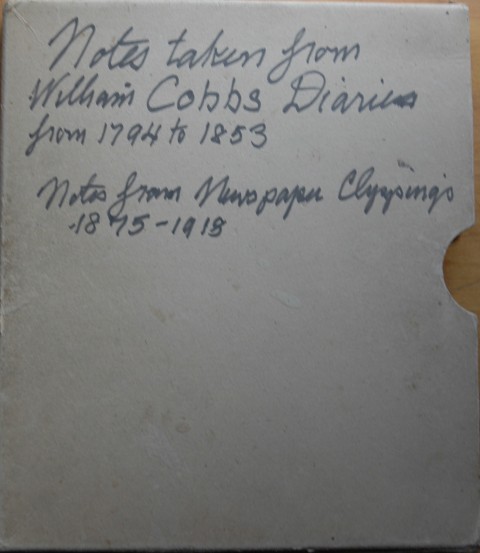 Notes taken from
William Cobbs Diaries
from 1794 to 1853
Notes from Newspaper Clyppings
1875-1918